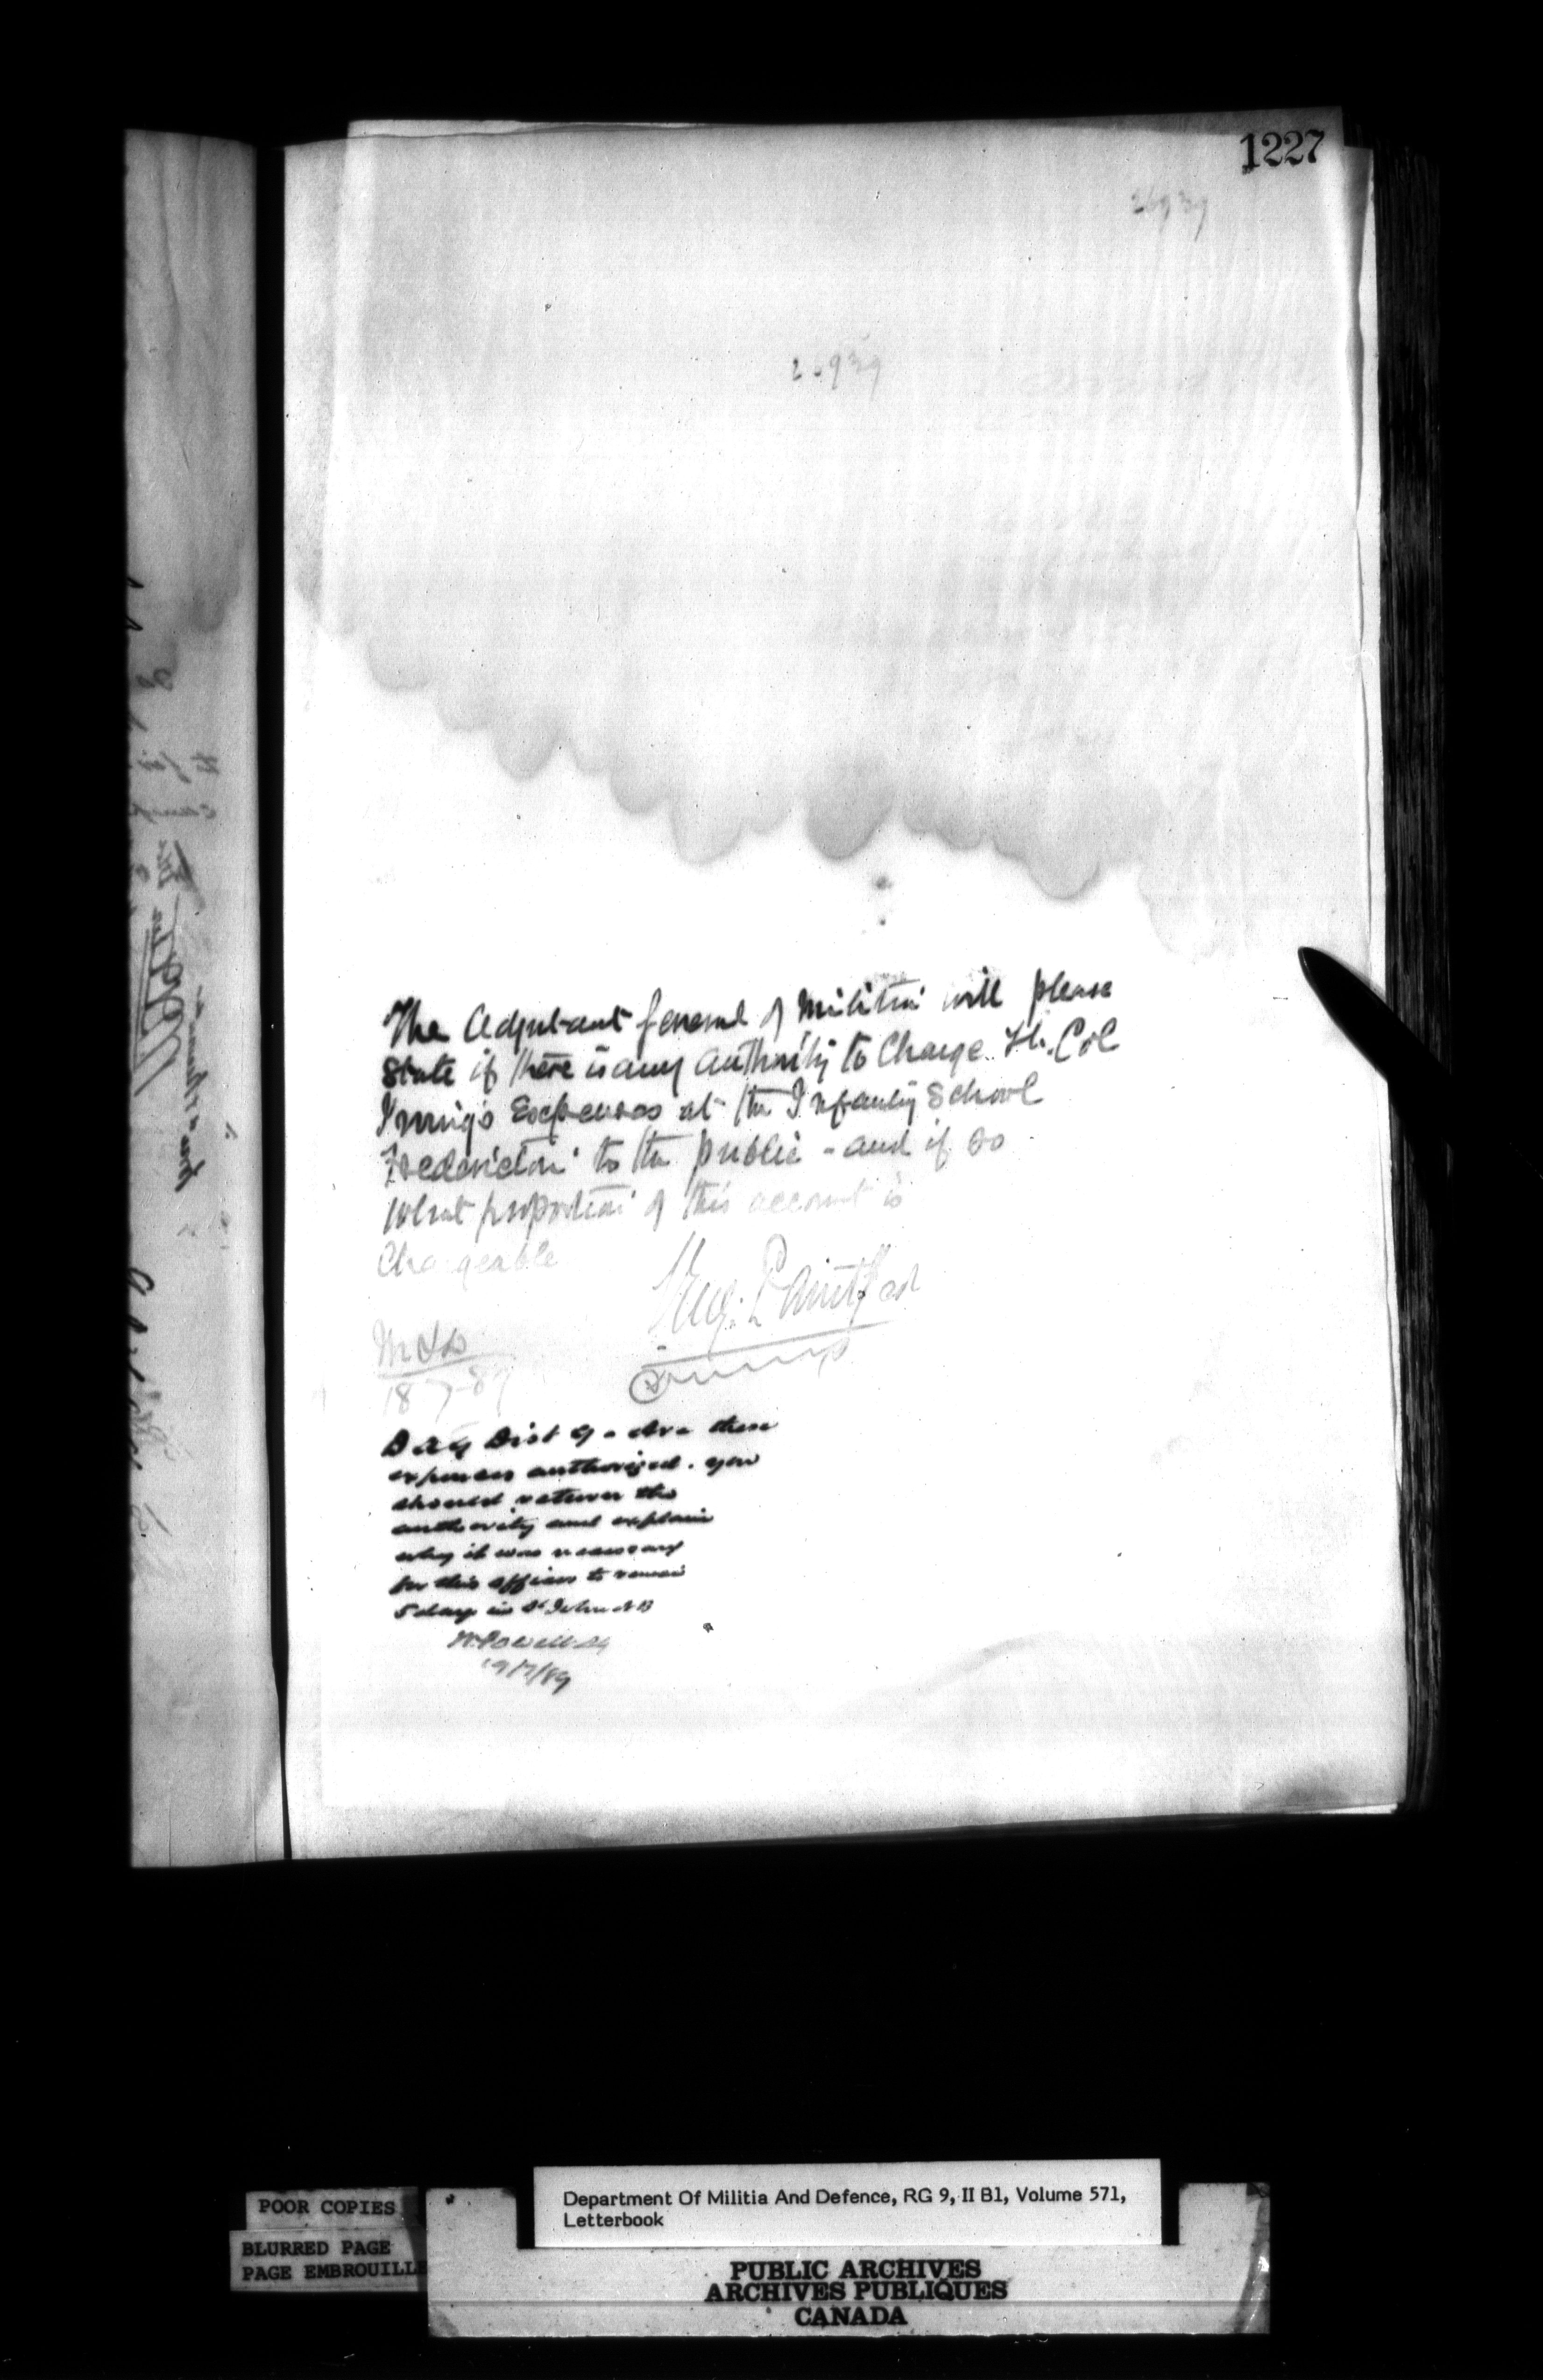 1227
26939
26939
The Adjutant General of Militia will please
State if there is any authority to Charge Lt. Col
Irving's Expenses at the Infantry School
Fredericton to the public - and if so
What proportion of this account is
Chargeable
M & D
18-7-89
DAG Dist 9 - Are these
expenses authorized. you
should return the
authority and explain
why it was necessary
for this officer to remain
5 days in St John NB
W. Powell AG
19/7/89
POOR COPIES
BLURRED PAGE
PAGE EMBROUILLE
Department Of Militia And Defence, RG 9, II B1, Volume 571,
Letterbook
PUBLIC ARCHIVES
ARCHIVES PUBLIQUES
CANADA